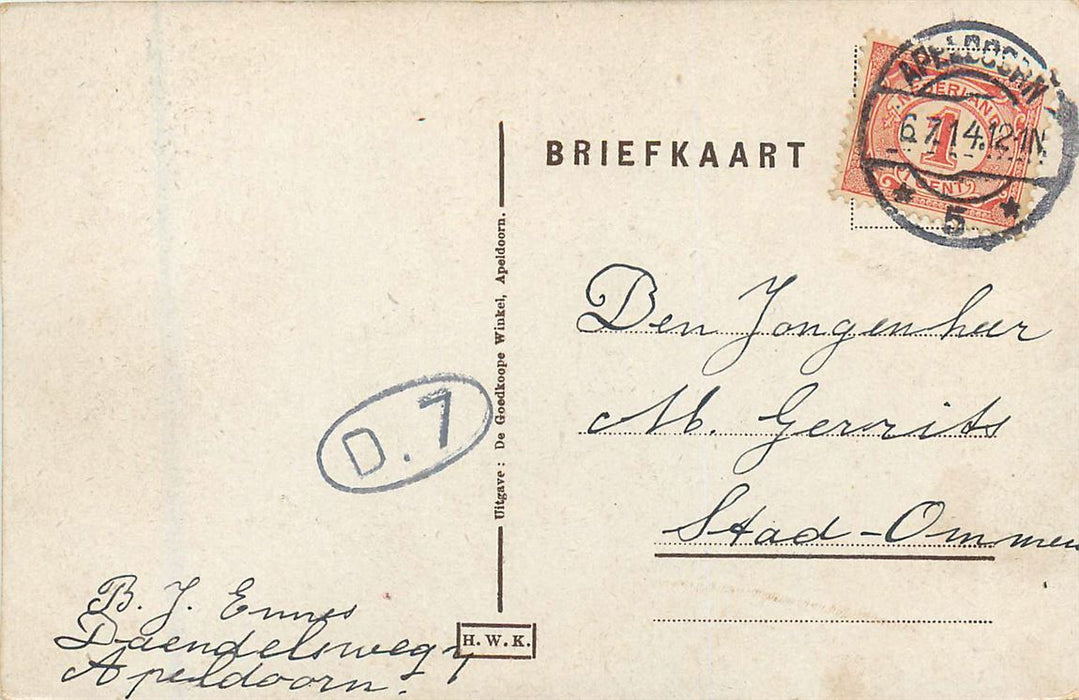 BRIEFKAART
APELDOORN
6.7.14.12-1N
5
NEDERLAND
1
CENT
Den Jongenheer
M. Gerrits
Stad-Ommen
Uitgave: De Goedkoope Winkel, Apeldoorn.
D.7
B. J. Ennes
Daendelsweg
Apeldoorn.
H.W.K.